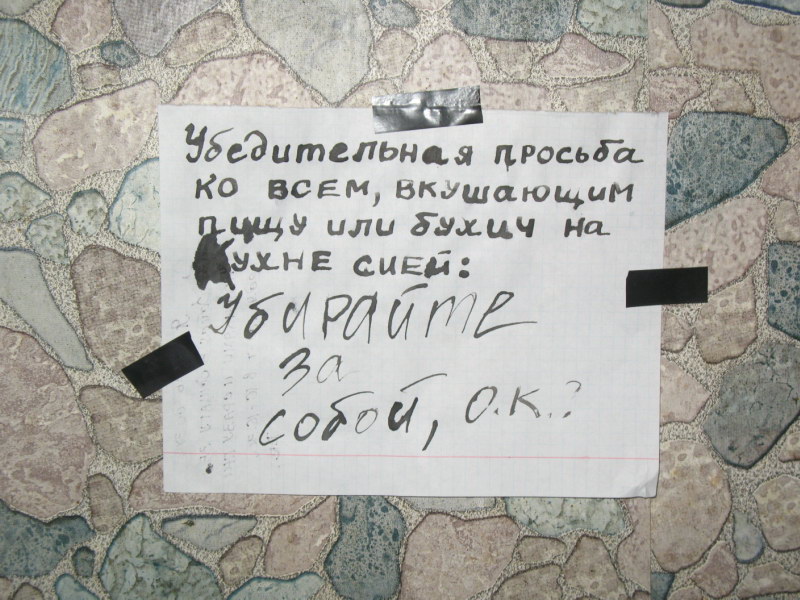 Убедительная просьба
ко всем, вкушающим
пищу или бухич на
кухне сией:
Убирайте
за
собой, О.К.?